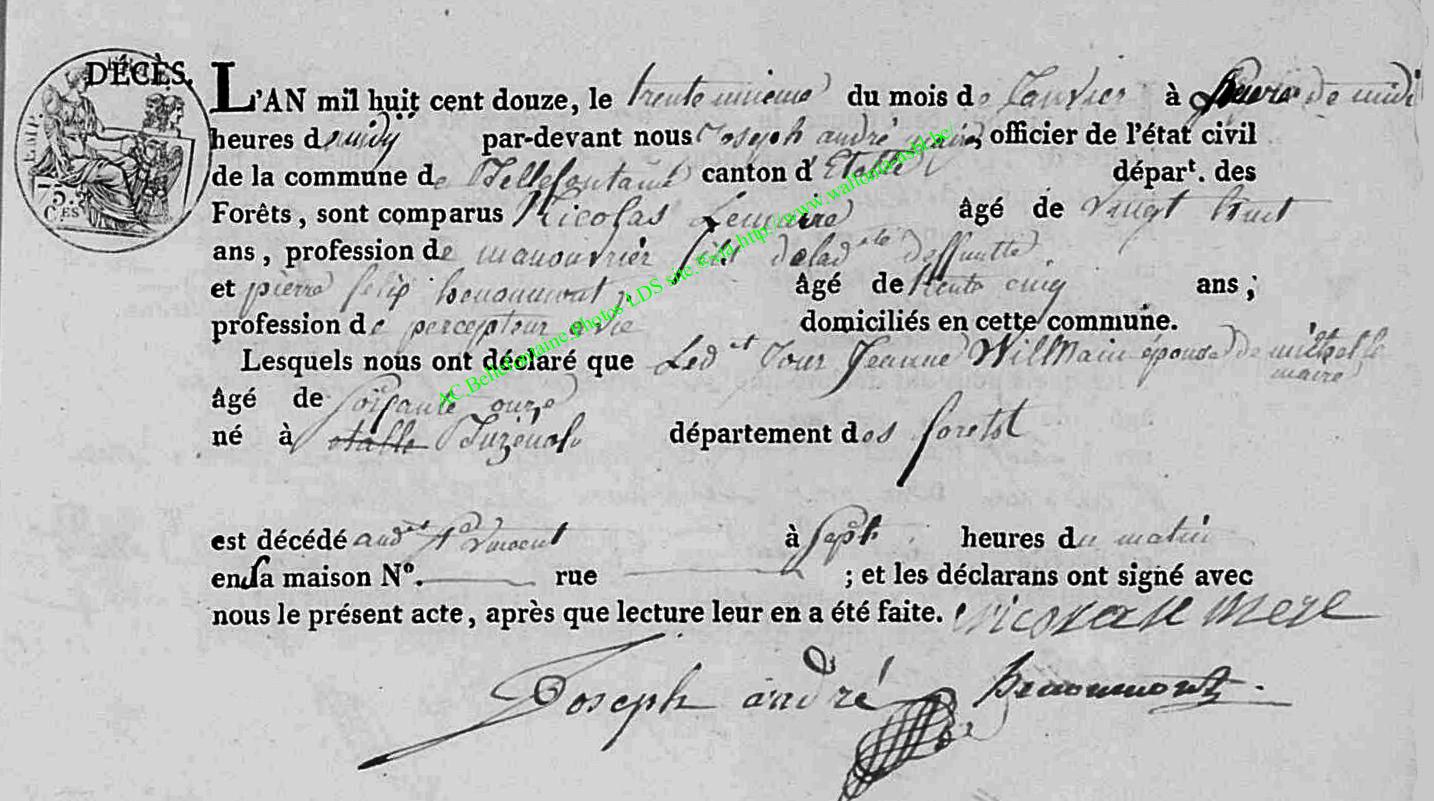 DÉCÈS.
L'AN mil huit cent douze, le trente unieme du mois de Janvier à heure de midi
heures de midy par-devant nous Joseph andré maire, officier de l'état civil
de la commune de Bellefontaine canton d'Etalle départ. des
Forêts, sont comparus Nicolas Lemaire âgé de vingt huit
ans, profession de manouvrier fils de lad.te deffuntte
et pierre felix âgé de trente cinq ans;
profession de percepteur a vie domiciliés en cette commune.
Lesquels nous ont déclaré que Led.it Jour Jeanne Willmain épouse de michel le
maire
âgé de soixante onze
né à département des forets
est décédé aud.it St Vincent à sept heures du matin
en sa maison N°. rue ; et les déclarans ont signé avec
nous le présent acte, après que lecture leur en a été faite. Nicolas le mere
Joseph andré
EMP.
75.
C.ES
AC.Bellefontaine.Photos LDS site.©xdt.http//www.wallonia.asbl.be/